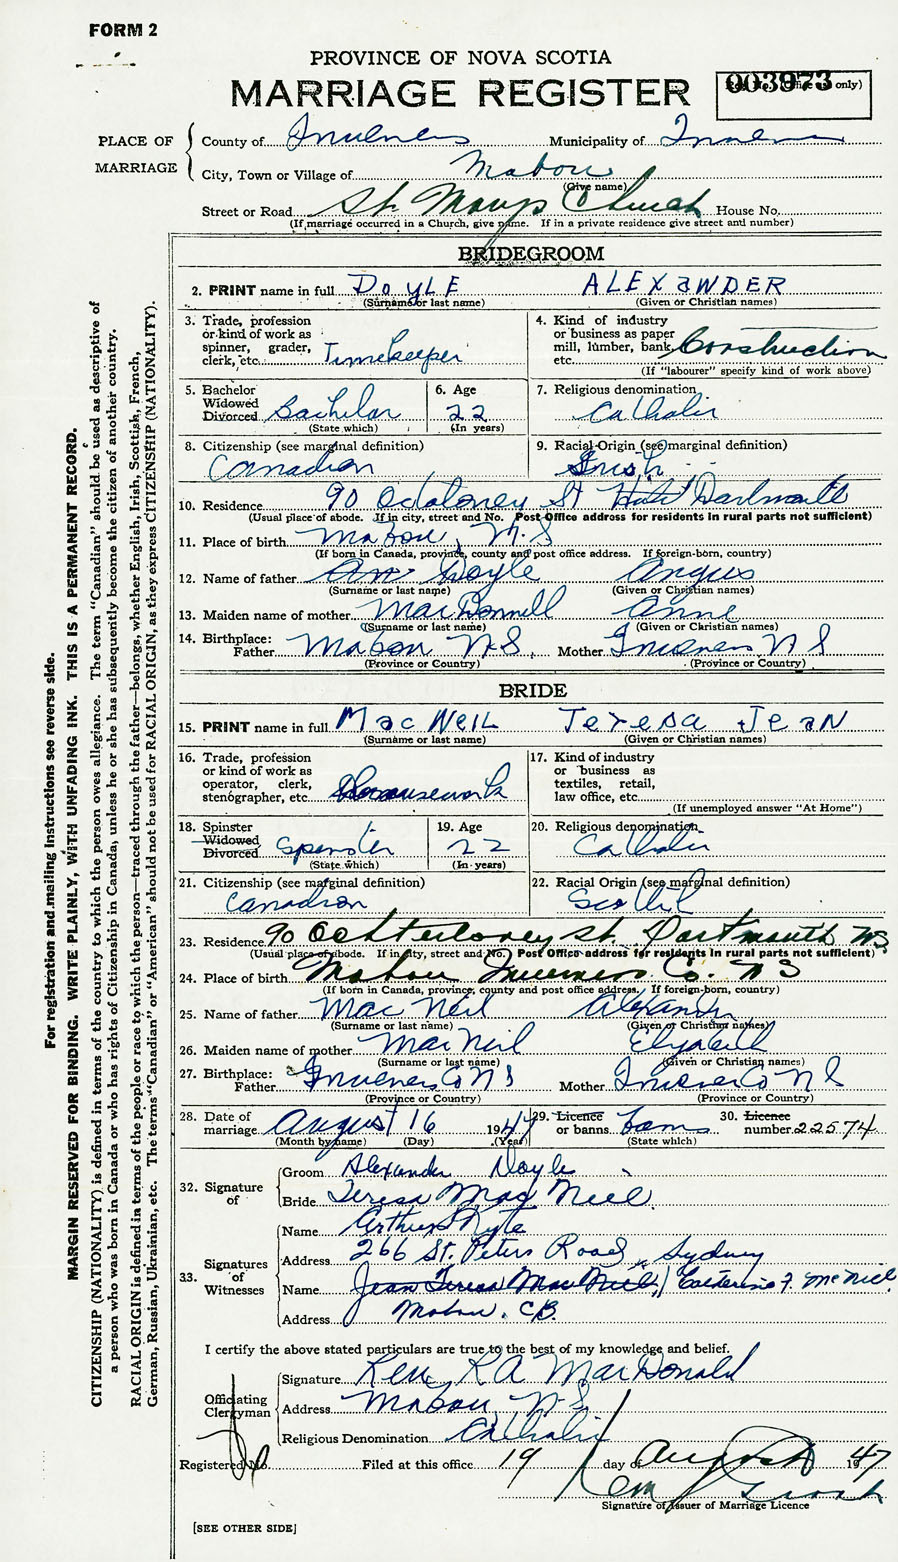 FORM 2
PROVINCE OF NOVA SCOTIA
MARRIAGE REGISTER
003973
only)
PLACE OF MARRIAGE
County of Inverness Municipality of Inverness
City, Town or Village of Mabou
(Give name)
Street or Road St. Marys Church House No.
(If marriage occurred in a Church, give name. If in a private residence give street and number)
BRIDEGROOM
2. PRINT name in full DOYLE ALEXANDER
(Surname or last name) (Given or Christian names)
3. Trade, profession or kind of work as spinner, grader, clerk, etc. Timekeeper
4. Kind of industry or business as paper mill, lumber, bank, etc. Construction
(If "labourer" specify kind of work above)
5. Bachelor Widowed Divorced Bachelor
(State which)
6. Age 22
(In years)
7. Religious denomination Catholic
8. Citizenship (see marginal definition) Canadian
9. Racial Origin (see marginal definition) Irish
10. Residence 90 St Dartmouth
(Usual place of abode. If in city, street and No. Post Office address for residents in rural parts not sufficient)
11. Place of birth Mabou, N.S
(If born in Canada, province, county and post office address. If foreign-born, country)
12. Name of father Doyle Angus
(Surname or last name) (Given or Christian names)
13. Maiden name of mother MacDonnell Anne
(Surname or last name) (Given or Christian names)
14. Birthplace: Father Mabou N.S. Mother Inverness N S
(Province or Country) (Province or Country)
BRIDE
15. PRINT name in full MacNEIL Teresa Jean
(Surname or last name) (Given or Christian names)
16. Trade, profession or kind of work as operator, clerk, stenographer, etc. Housework
17. Kind of industry or business as textiles, retail, law office, etc.
(If unemployed answer "At Home")
18. Spinster Widowed Divorced Spinster
(State which)
19. Age 22
(In years)
20. Religious denomination Catholic
21. Citizenship (see marginal definition) Canadian
22. Racial Origin (see marginal definition) Scottish
23. Residence 90 Ochterloney St. Dartmouth N.S.
(Usual place of abode. If in city, street and No. Post Office address for residents in rural parts not sufficient)
24. Place of birth Mabou Inverness Co. N S
(If born in Canada, province, county and post office address. If foreign-born, country)
25. Name of father Mac Neil Alexander
(Surname or last name) (Given or Christian names)
26. Maiden name of mother MacNeil Elizabeth
(Surname or last name) (Given or Christian names)
27. Birthplace: Father Inverness Co N S Mother Inverness Co N S
(Province or Country) (Province or Country)
28. Date of marriage August 16 1947
(Month by name) (Day) (Year)
29. Licence or banns
(State which)
30. Licence number 22574
32. Signature of
Groom Alexander Doyle
Bride Teresa MacNeil
33. Signatures of Witnesses
Name Arthur Kyte
Address 266 St. Peters Road, Sydney
Name Jean Teresa MacNeil Catherine F. McNeil
Address Mabou. C.B.
I certify the above stated particulars are true to the best of my knowledge and belief.
Officiating Clergyman
Signature Rev. R A MacDonald
Address Mabou, N.S.
Religious Denomination Catholic
Registered No. Filed at this office 19 day of August 1947
Signature of Issuer of Marriage Licence
[SEE OTHER SIDE]
For registration and mailing instructions see reverse side.
MARGIN RESERVED FOR BINDING. WRITE PLAINLY, WITH UNFADING INK. THIS IS A PERMANENT RECORD.
CITIZENSHIP (NATIONALITY) is defined in terms of the country to which the person owes allegiance. The term "Canadian" should be used as descriptive of
a person who was born in Canada or who has rights of Citizenship in Canada, unless he or she has subsequently become the citizen of another country.
RACIAL ORIGIN is defined in terms of the people or race to which the person—traced through the father—belongs, whether English, Irish, Scottish, French,
German, Russian, Ukrainian, etc. The terms "Canadian" or "American" should not be used for RACIAL ORIGIN, as they express CITIZENSHIP (NATIONALITY).